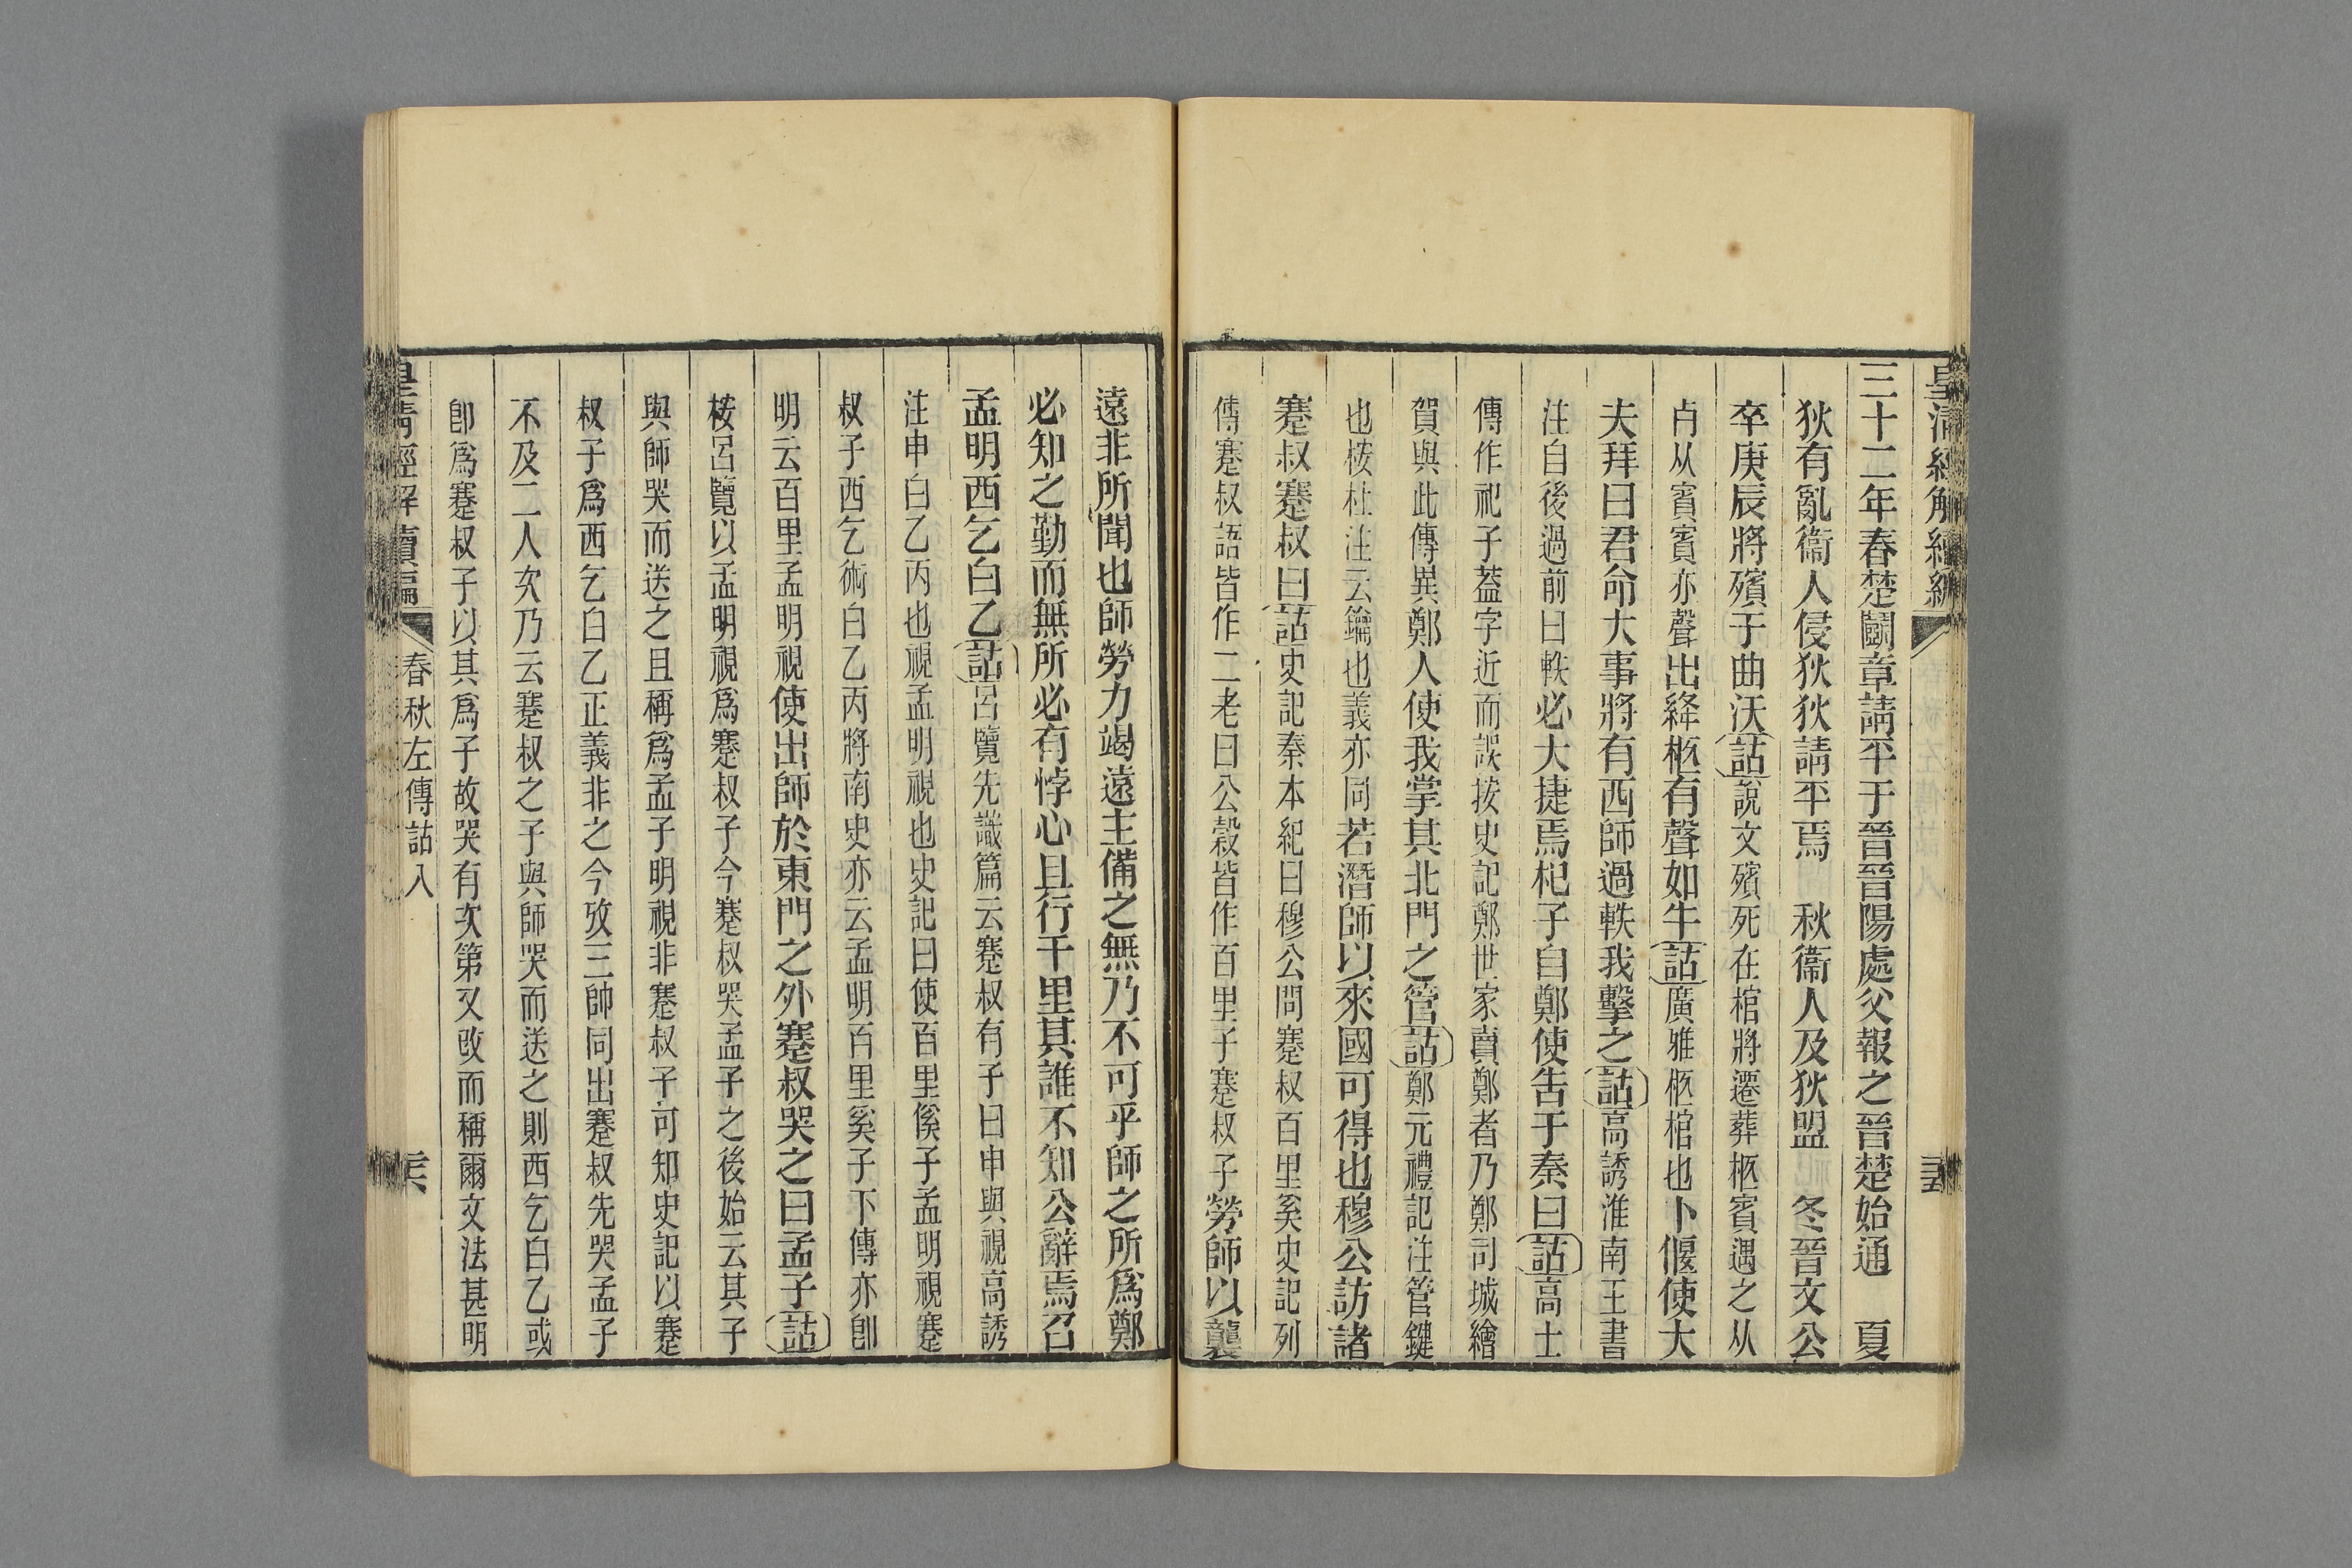 三十二年春楚鬬章請平于晉晉陽處父報之晉楚始通　夏
狄有亂衞人侵狄狄請平焉　秋衞人及狄盟　冬晉文公
卒庚辰將殯于曲沃詁說文殯死在棺將遷葬柩賓遇之从
歺从賓賓亦聲出絳柩有聲如牛詁廣雅柩棺也卜偃使大
夫拜曰君命大事將有西師過軼我擊之詁高誘淮南王書
注自後過前曰軼必大捷焉杞子自鄭使告于秦曰詁高士
傳作祀子蓋字近而誤按史記鄭世家賣鄭者乃鄭司城繒
賀與此傳異鄭人使我掌其北門之管詁鄭元禮記注管鍵
也桉杜注云鑰也義亦同若潛師以來國可得也穆公訪諸
蹇叔蹇叔曰詁史記秦本紀曰穆公問蹇叔百里奚史記列
傳蹇叔語皆作二老曰公穀皆作百里子蹇叔子勞師以襲
遠非所聞也師勞力竭遠主備之無乃不可乎師之所爲鄭
必知之勤而無所必有悖心且行千里其誰不知公辭焉召
孟明西乞白乙詁呂覽先識篇云蹇叔有子曰申與視高誘
注申白乙丙也視孟明視也史記曰使百里傒子孟明視蹇
叔子西乞術白乙丙將南史亦云孟明百里奚子下傳亦卽
明云百里孟明視使出師於東門之外蹇叔哭之曰孟子詁
桉呂覽以孟明視爲蹇叔子今蹇叔哭孟子之後始云其子
與師哭而送之且稱爲孟子明視非蹇叔子可知史記以蹇
叔子爲西乞白乙正義非之今攷三帥同出蹇叔先哭孟子
不及二人次乃云蹇叔之子與師哭而送之則西乞白乙或
卽爲蹇叔子以其爲子故哭有次第又改而稱爾文法甚明
春秋左傳詁八